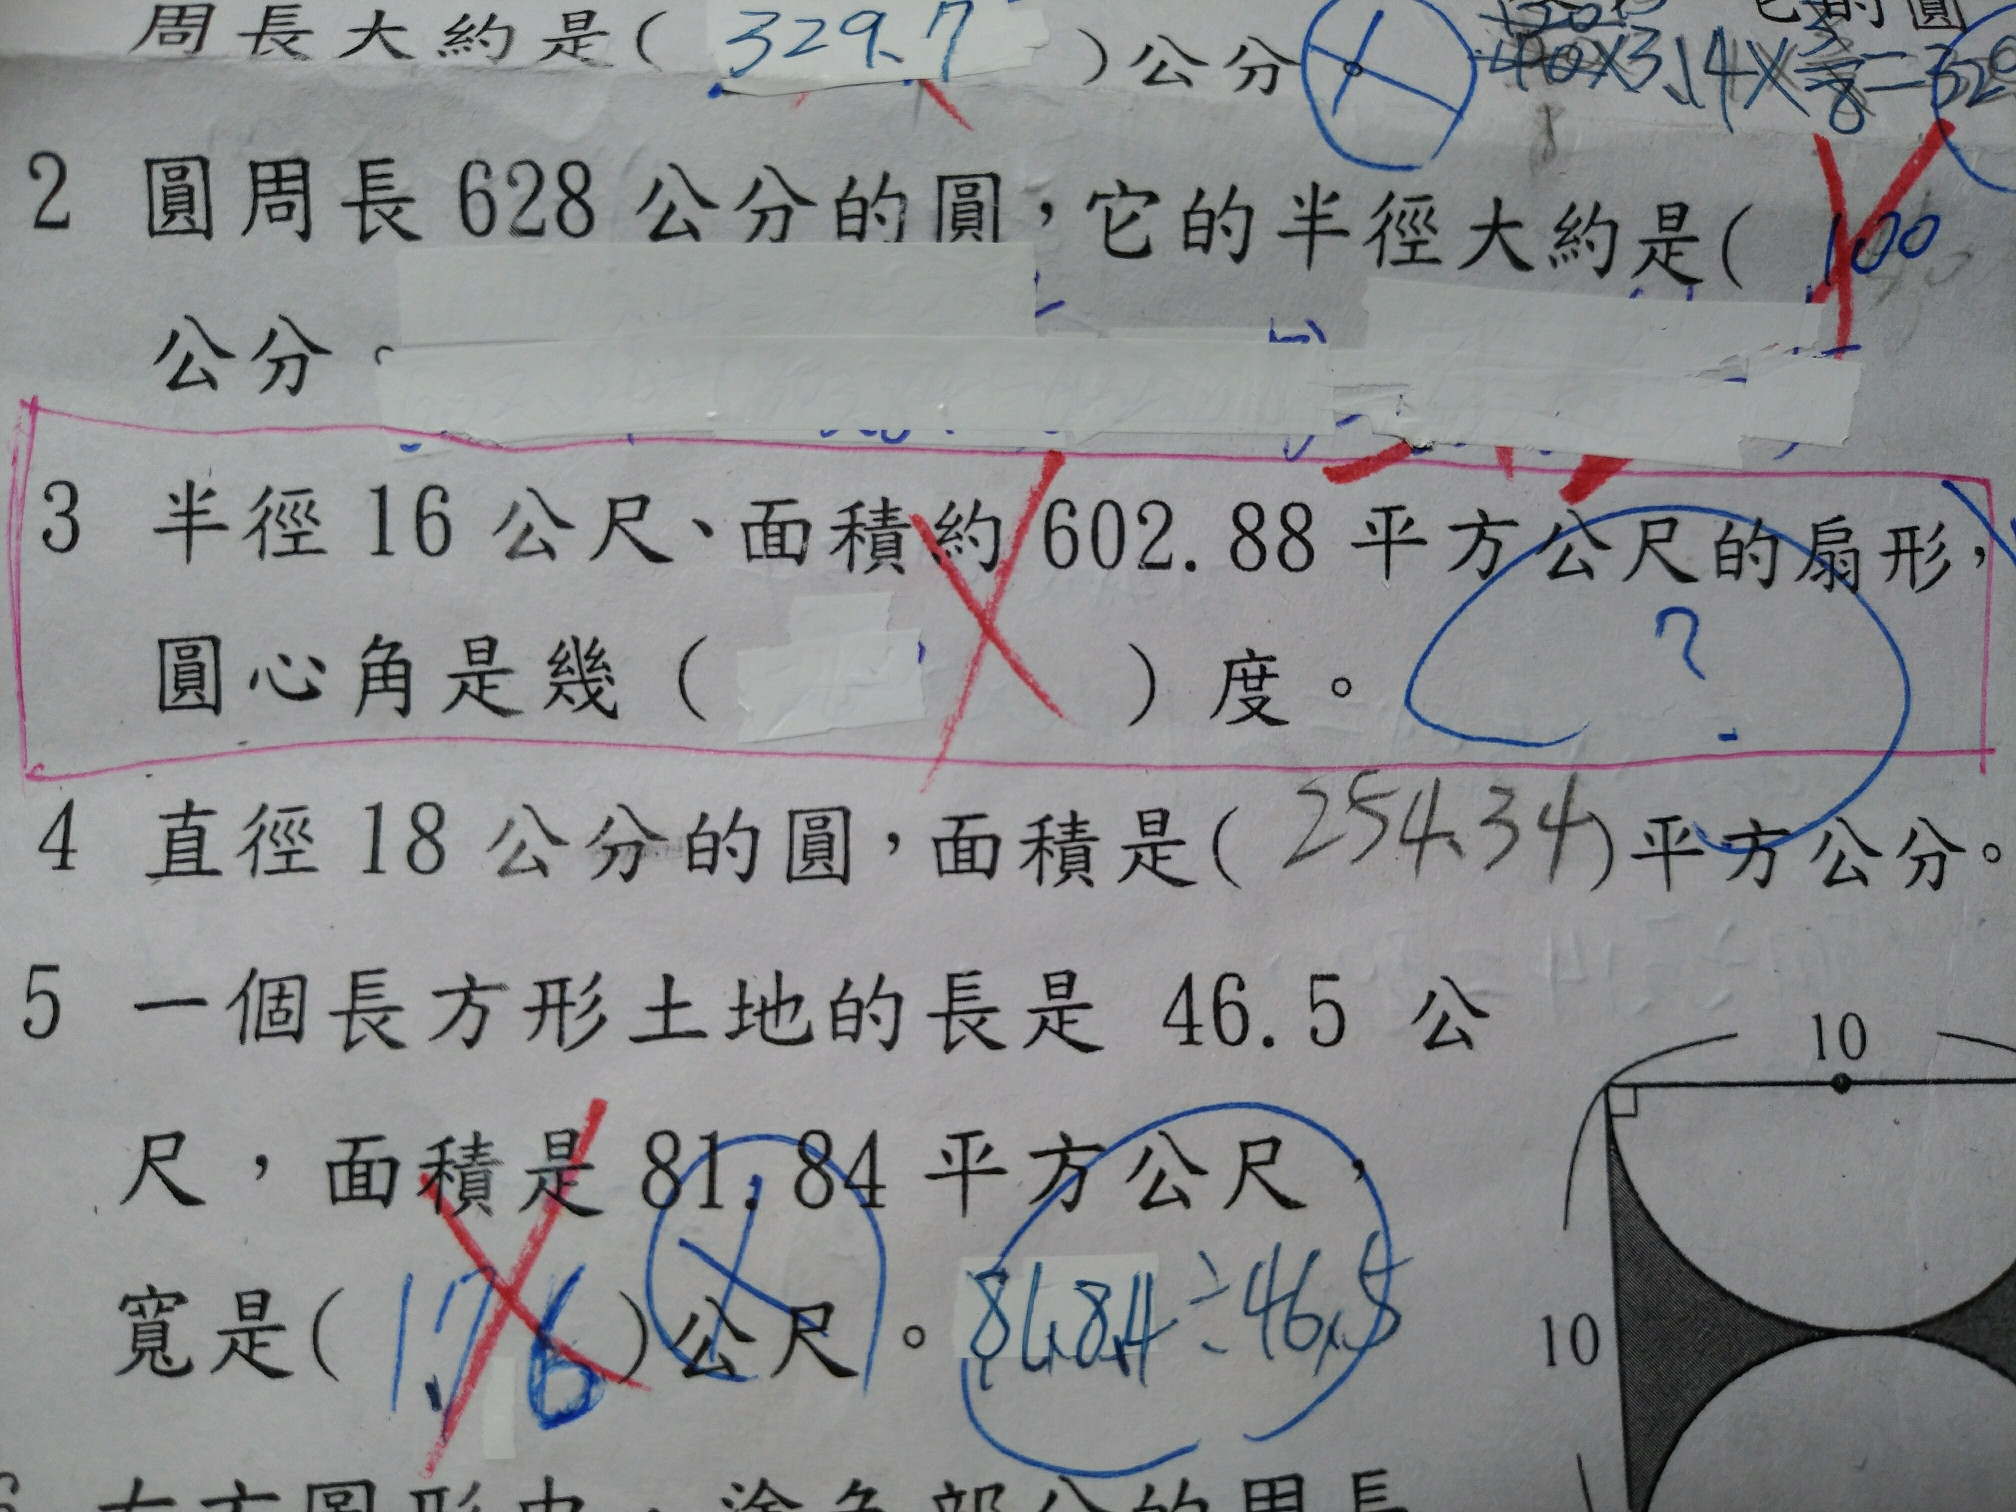 周長大約是( 329.7 )公分 40×3.14×
2 圓周長 628 公分的圓，它的半徑大約是( 100
公分。
3 半徑 16 公尺、面積約 602.88 平方公尺的扇形，
圓心角是幾 ( ) 度。 ?
4 直徑 18 公分的圓，面積是( 254.34 )平方公分。
5 一個長方形土地的長是 46.5 公
尺，面積是 81.84 平方公尺，
寬是( 1.76 )公尺。 81.84÷46.5
10
10
右方圖形中，塗色部分的周長